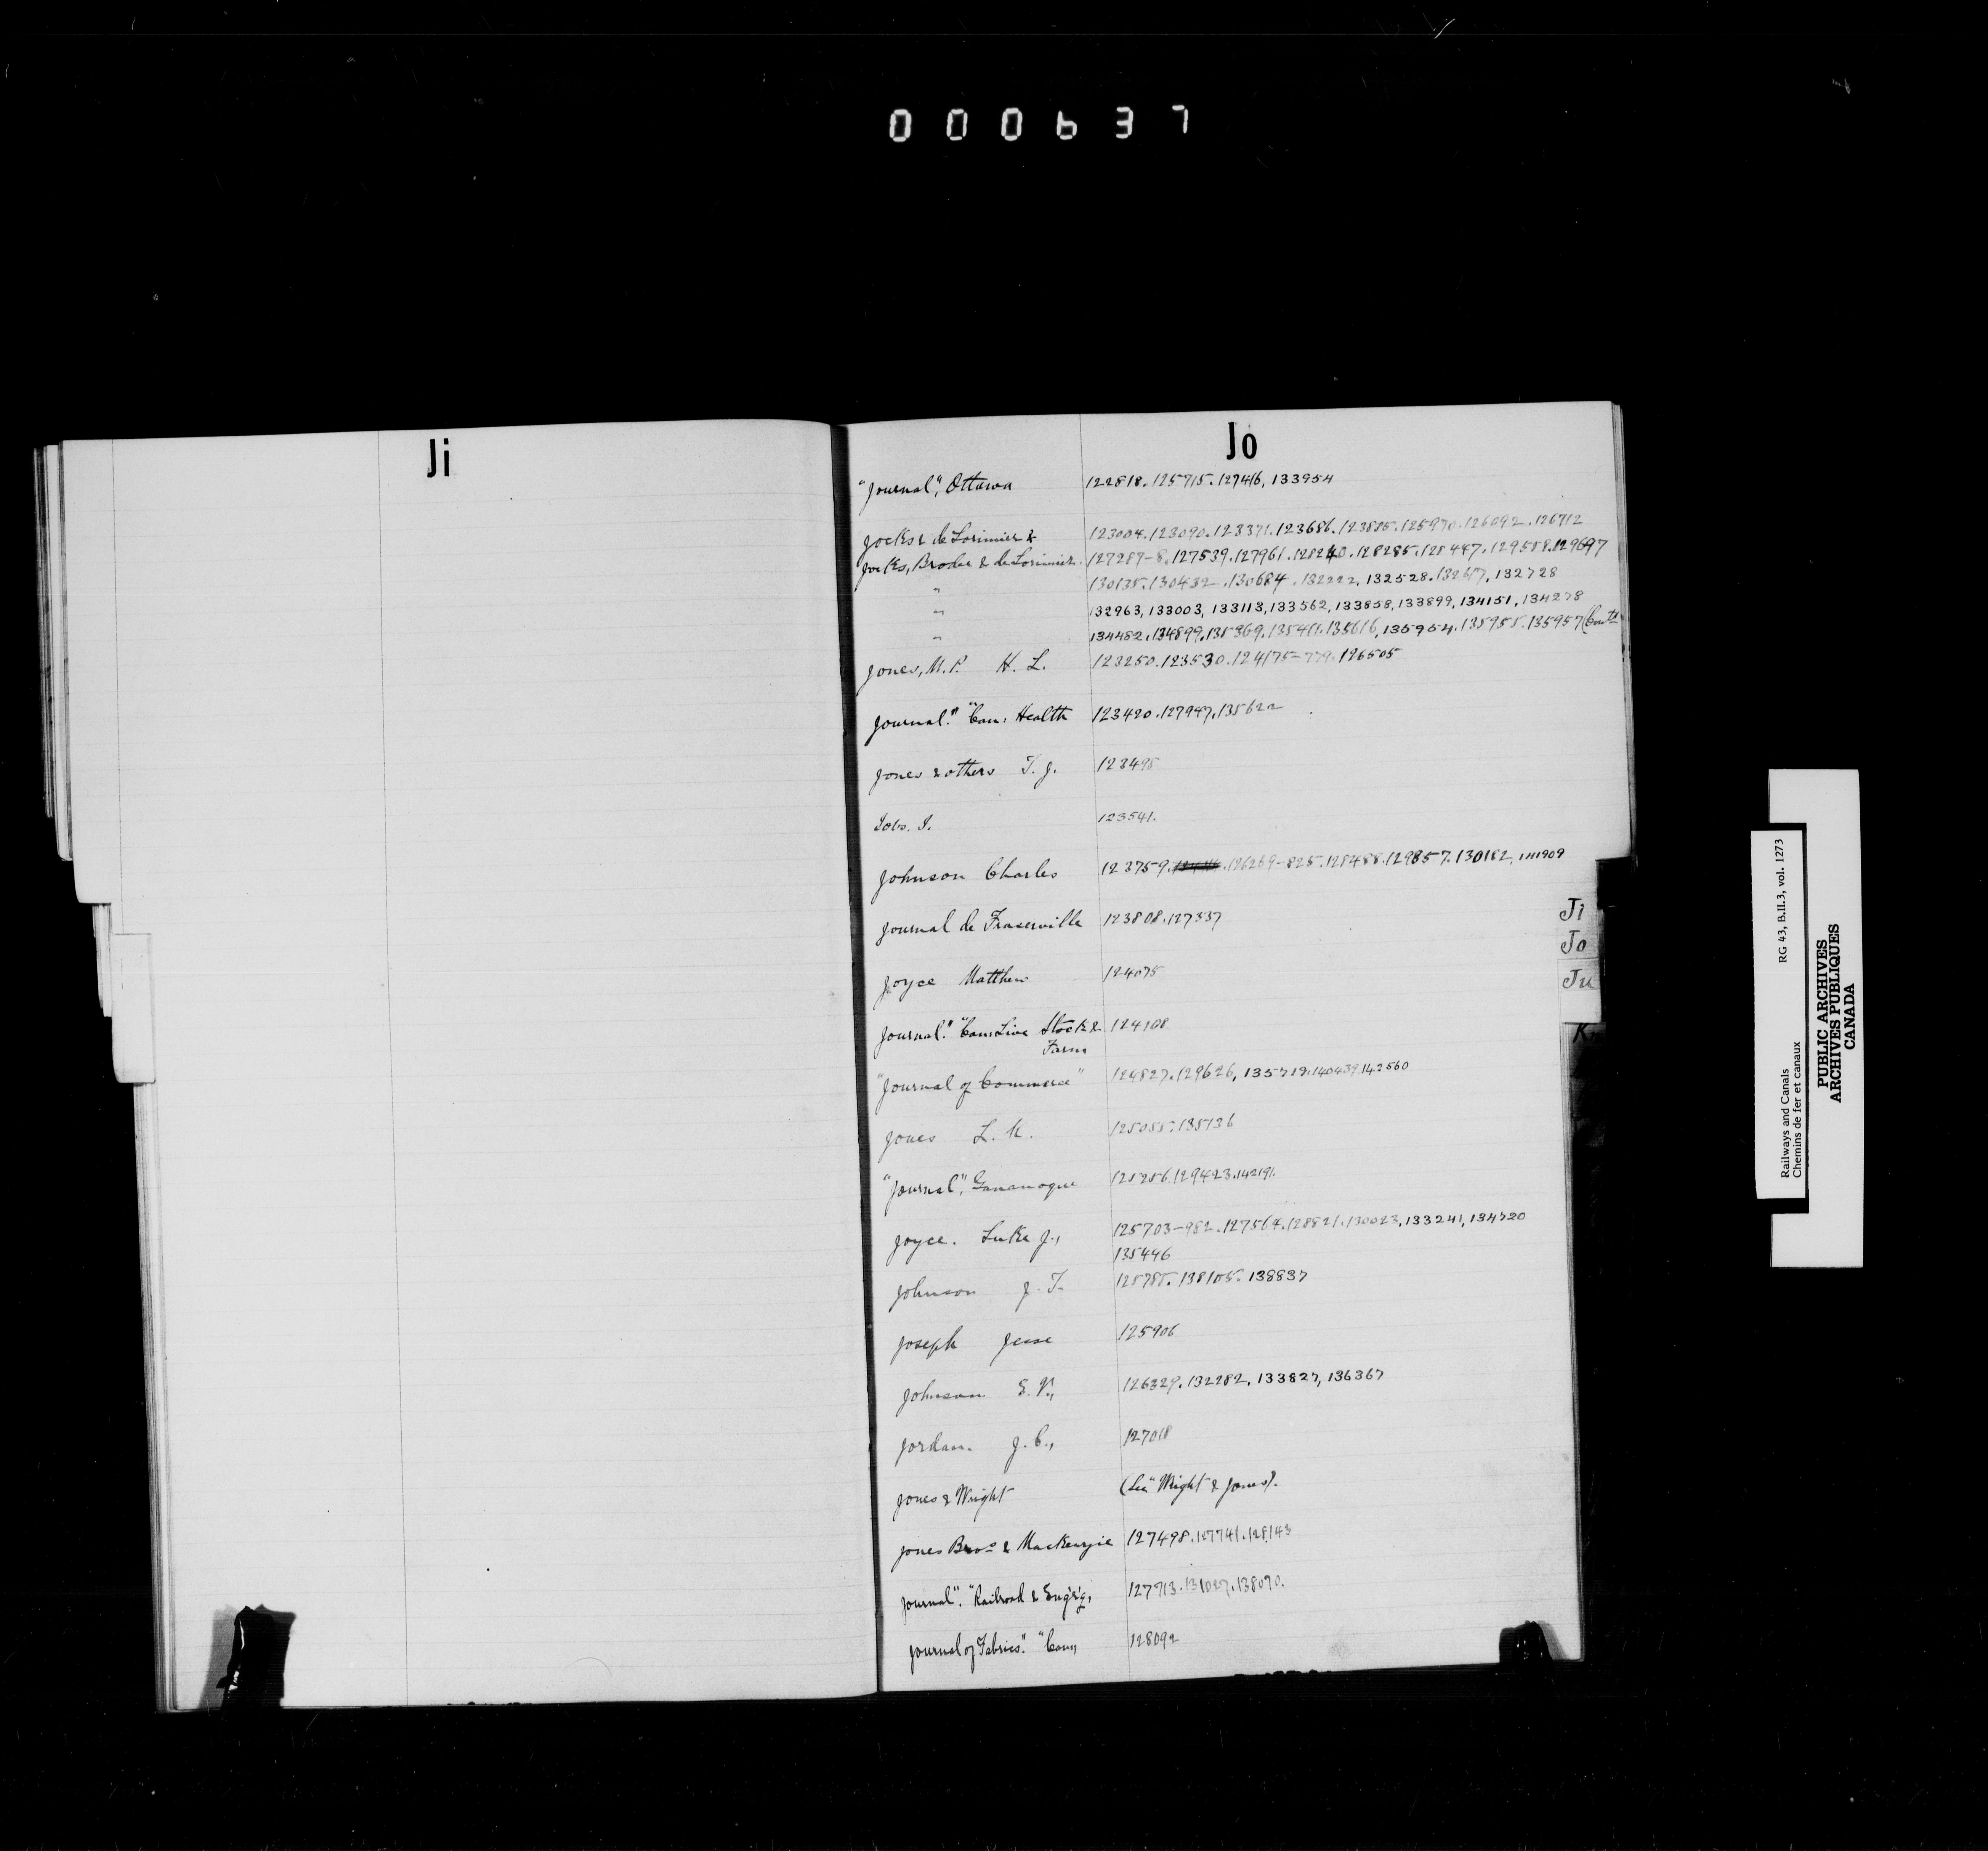 000637
Ji
Jo
"Journal", Ottawa 122818. 125715. 127416, 133954
Jocks & de Lorimier & 123004. 123090. 123371. 123686. 123885. 125970. 126092. 126712
Jocks, Broder & de Lorimier 127287-8. 127539. 127961. 128240. 128285. 128447. 129588. 129697
" 130135. 130432. 130684. 132222, 132528. 132617, 132728
" 132963, 133003, 133113, 133562, 133858, 133899, 134151, 134278
" 134482. 134899. 135369. 135411. 135616, 135954. 135955. 135957 (Contd
Jones, M.P. H. L. 123250. 123530. 124175-779. 126505
Journal." "Can. Health 123420. 127947. 135622
Jones & others T. J. 123498
Jobs. I. 123541.
Johnson Charles 123759. 126269-825. 128488. 129857. 130182, 141909
Journal de Fraserville 123808. 127337
Joyce Matthew 124075
Journal." "Can. Live Stock & 124108
Farm
"Journal of Commerce" 124827. 129626, 135719. 140439. 142560
Jones L. K. 125055. 135136
"Journal", Gananoque 125256. 129423. 142191.
Joyce. Luke J., 125703-982. 127564. 128821. 130023, 133241, 134320
135446
Johnson J. T. 125785. 138105. 138837
Joseph Jesse 125906
Johnson E. V., 126329. 132282, 133827, 136367
Jordan. J. C., 127018
Jones & Wright (See "Wright & Jones).
Jones Bros & MacKenzie 127498. 127741. 128143
Journal". "Railroad & Eng'r'g, 127713. 131027. 138070.
Journal of Fabrics." "Can, 128092
Ji
Jo
Ju
K
Railways and Canals RG 43, B.II.3, vol. 1273
Chemins de fer et canaux
PUBLIC ARCHIVES
ARCHIVES PUBLIQUES
CANADA